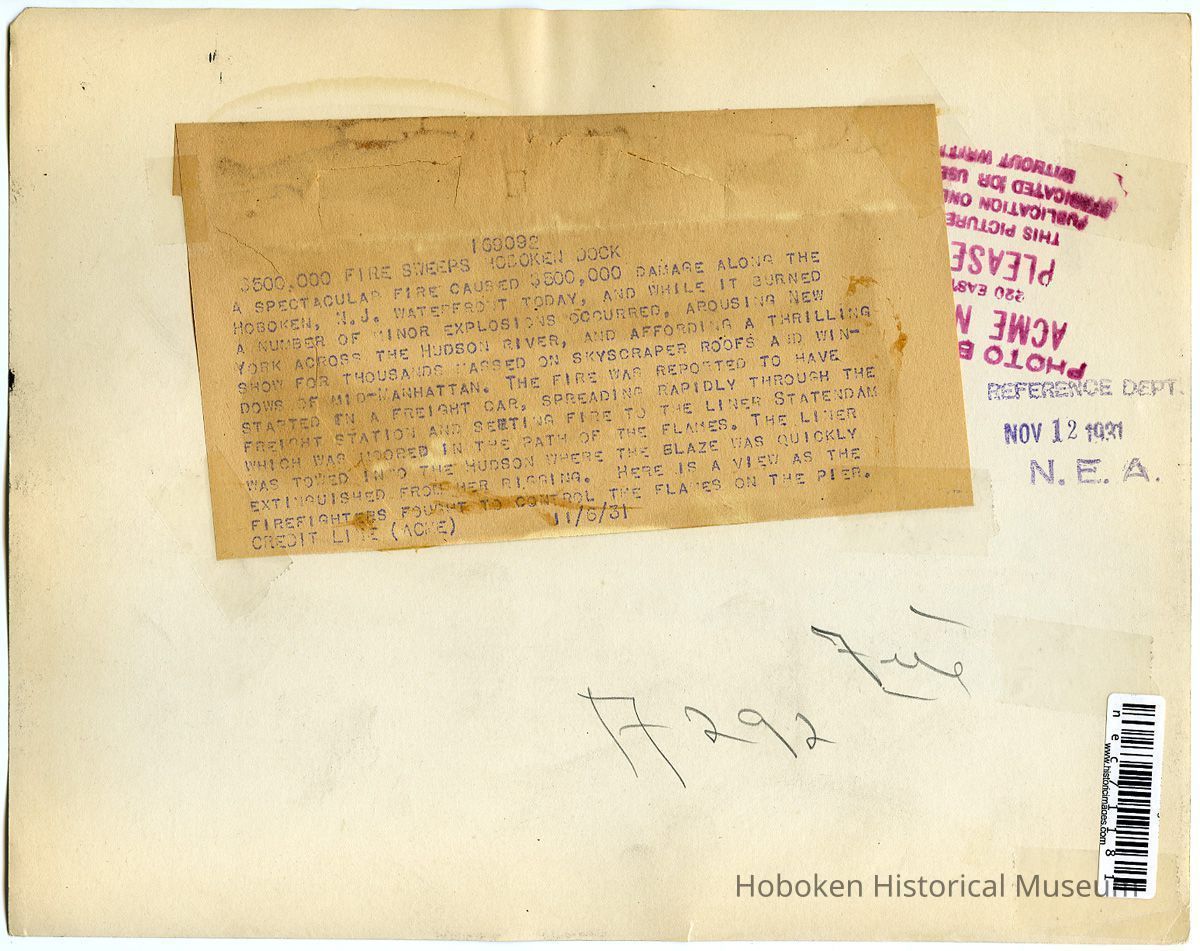 169092
$500,000 FIRE SWEEPS HOBOKEN DOCK
A SPECTACULAR FIRE CAUSED $500,000 DAMAGE ALONG THE
HOBOKEN, N.J. WATERFRONT TODAY, AND WHILE IT BURNED
A NUMBER OF MINOR EXPLOSIONS OCCURRED, AROUSING NEW
YORK ACROSS THE HUDSON RIVER, AND AFFORDING A THRILLING
SHOW FOR THOUSANDS MASSED ON SKYSCRAPER ROOFS AND WIN-
DOWS OF MID-MANHATTAN. THE FIRE WAS REPORTED TO HAVE
STARTED IN A FREIGHT CAR, SPREADING RAPIDLY THROUGH THE
FREIGHT STATION AND SETTING FIRE TO THE LINER STATENDAM
WHICH WAS MOORED IN THE PATH OF THE FLAMES. THE LINER
WAS TOWED INTO THE HUDSON WHERE THE BLAZE WAS QUICKLY
EXTINGUISHED FROM HER RIGGING. HERE IS A VIEW AS THE
FIREFIGHTERS FOUGHT TO CONTROL THE FLAMES ON THE PIER.
CREDIT LINE (ACME) 11/6/31
PHOTO B
ACME N
220 EAST
PLEASE
THIS PICTURE
PUBLICATION ONL
SYNDICATED OR USE
WITHOUT WRITT
REFERENCE DEPT.
NOV 12 1931
N.E.A.
Fire
7292
www.historicimages.com
Hoboken Historical Museum